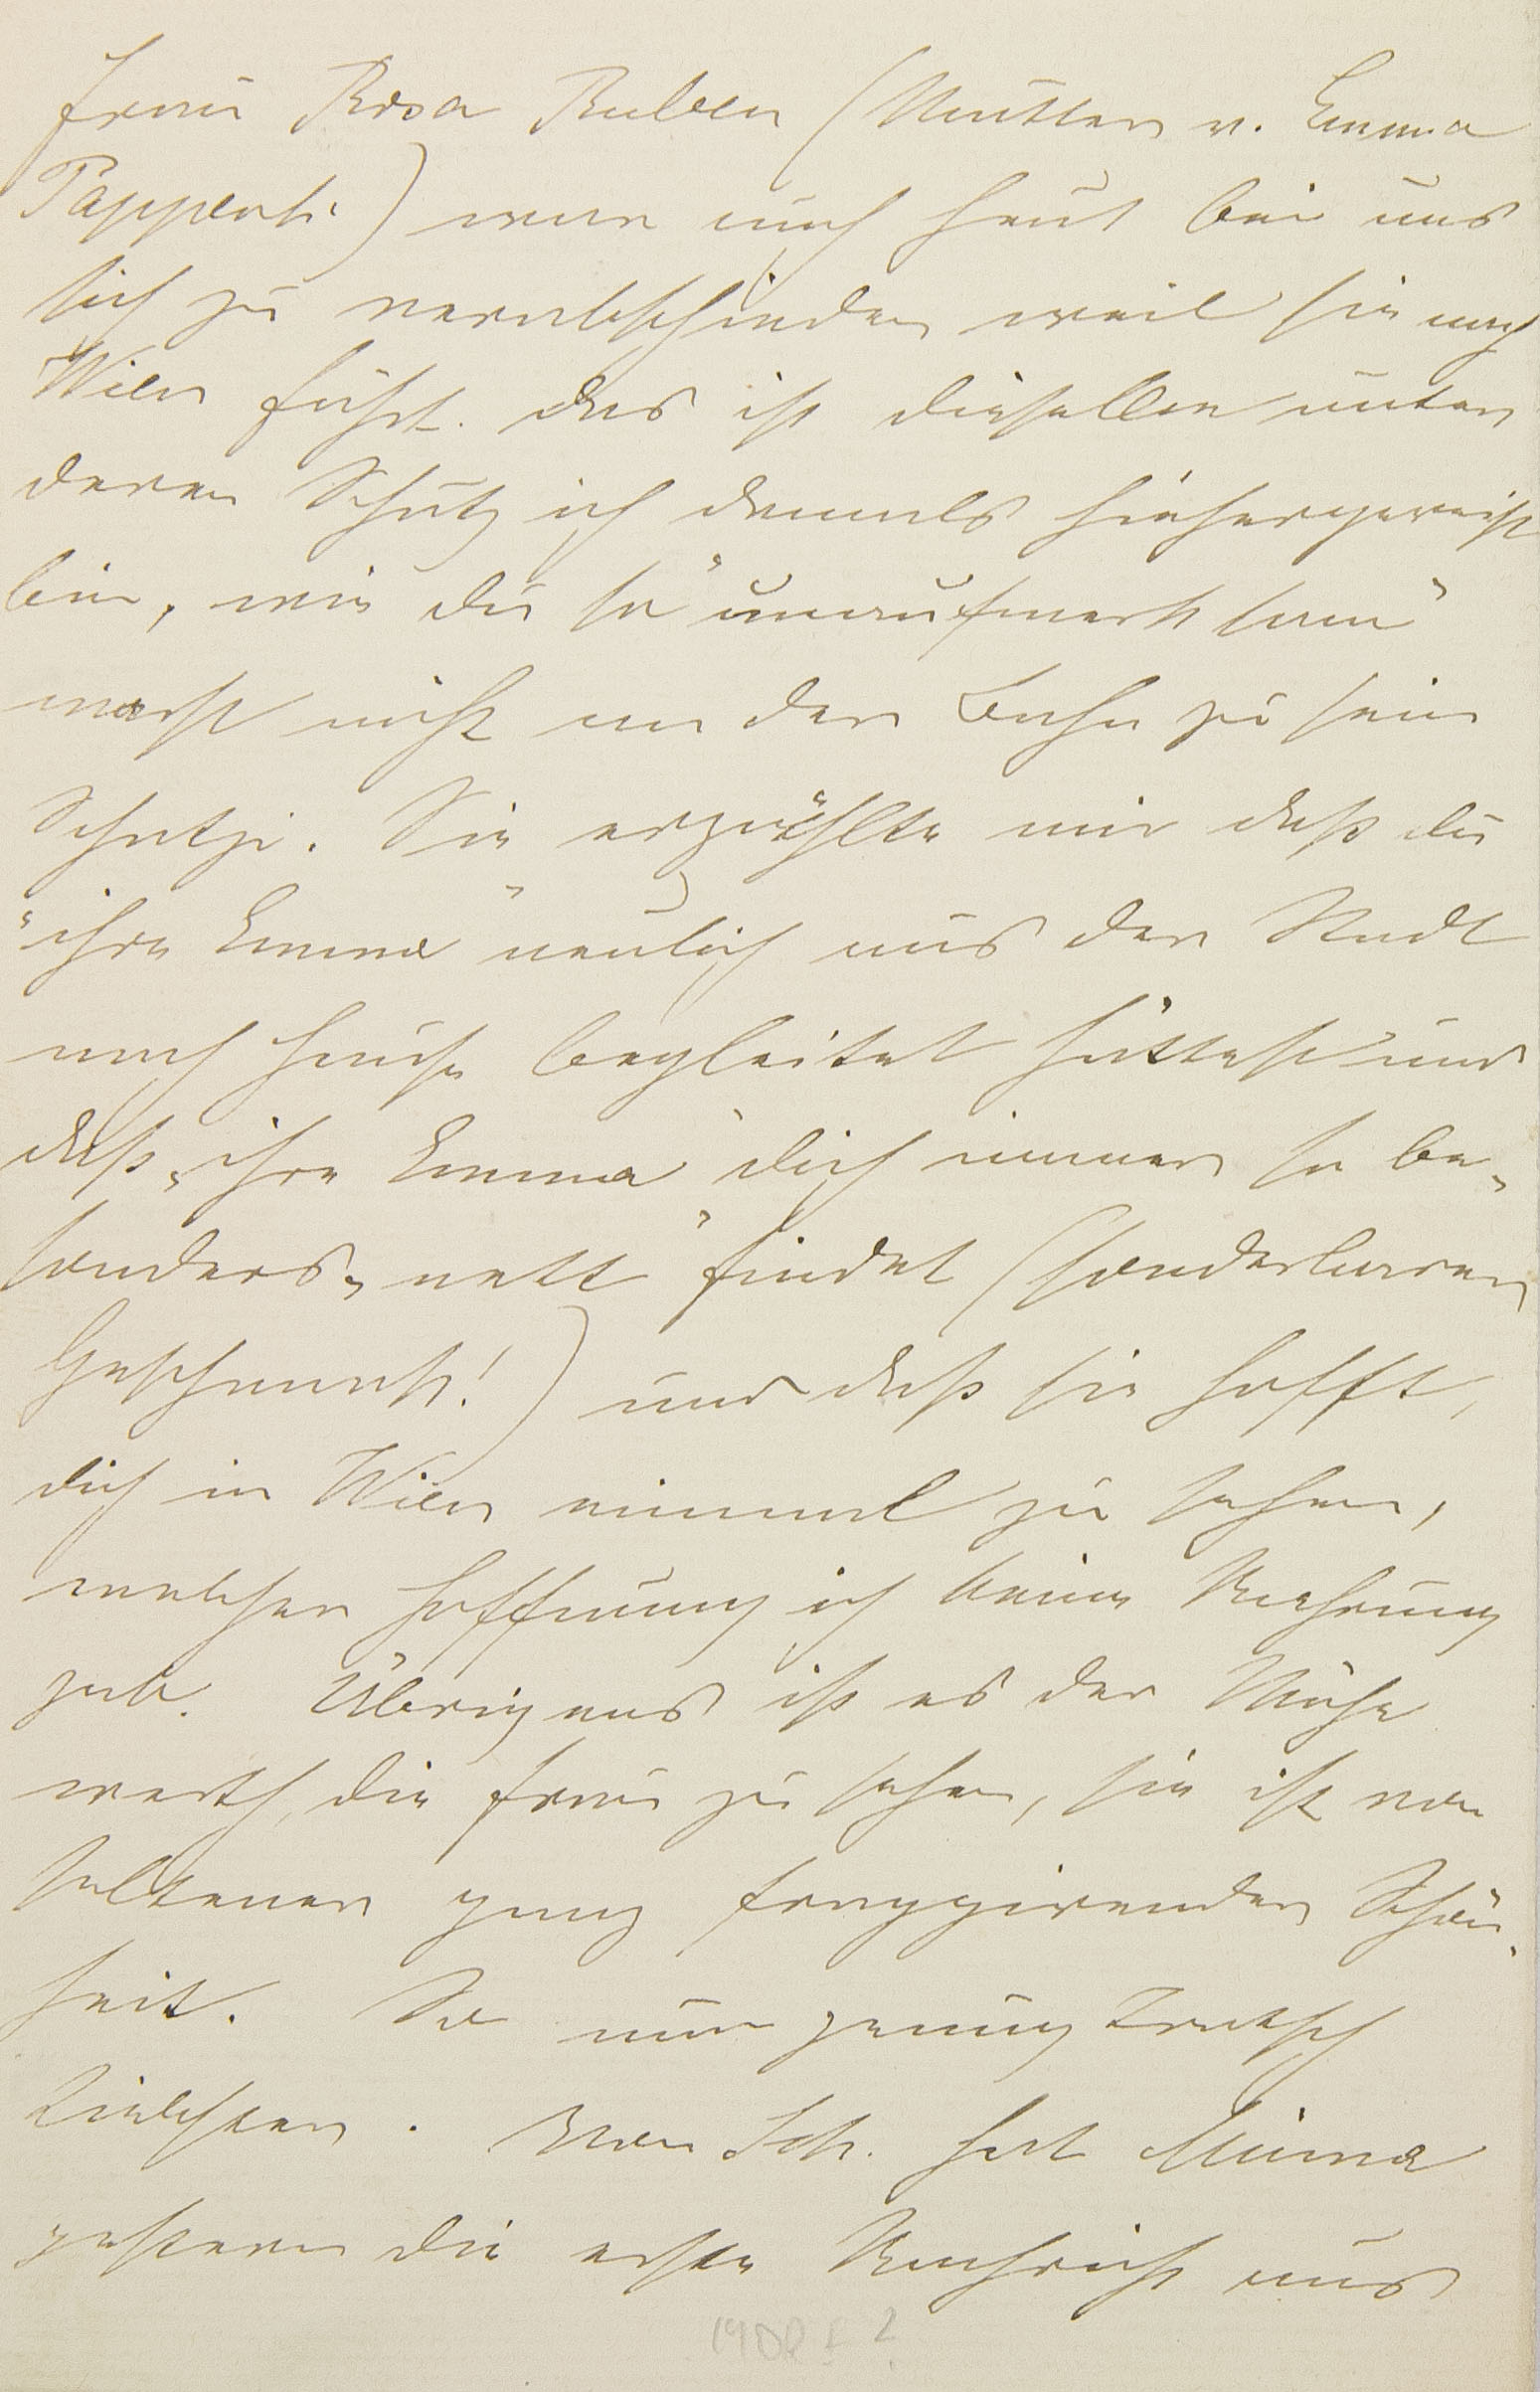 Frau Rosa Ruben (Mutter v. Emma
Pappenh.) war auch heut bei uns
sich zu verabschieden weil sie nach
Wien fährt. Das ist dieselbe unter
deren Schutz ich damals hiehergereist
bin, wie du so "unaufmerksam"
warst nicht an der Bahn zu sein
Schatzi. Sie erzählte mir daß du
"ihre Emma" neulich aus der Stadt
nach Hause begleitet hättest und
daß "ihre Emma" dich immer so be-
sonders "nett" findet (sonderbarer
Geschmack!) und daß sie hofft,
dich in Wien einmal zu sehen,
welcher Hoffnung ich keine Nahrung
gab. Übrigens ist es der Mühe
werth, die Frau zu sehen, sie ist von
seltener ganz frappirender Schön-
heit. So nun genug Tratsch
Liebster. Von Sch. hat Minna
gestern die erste Nachricht aus